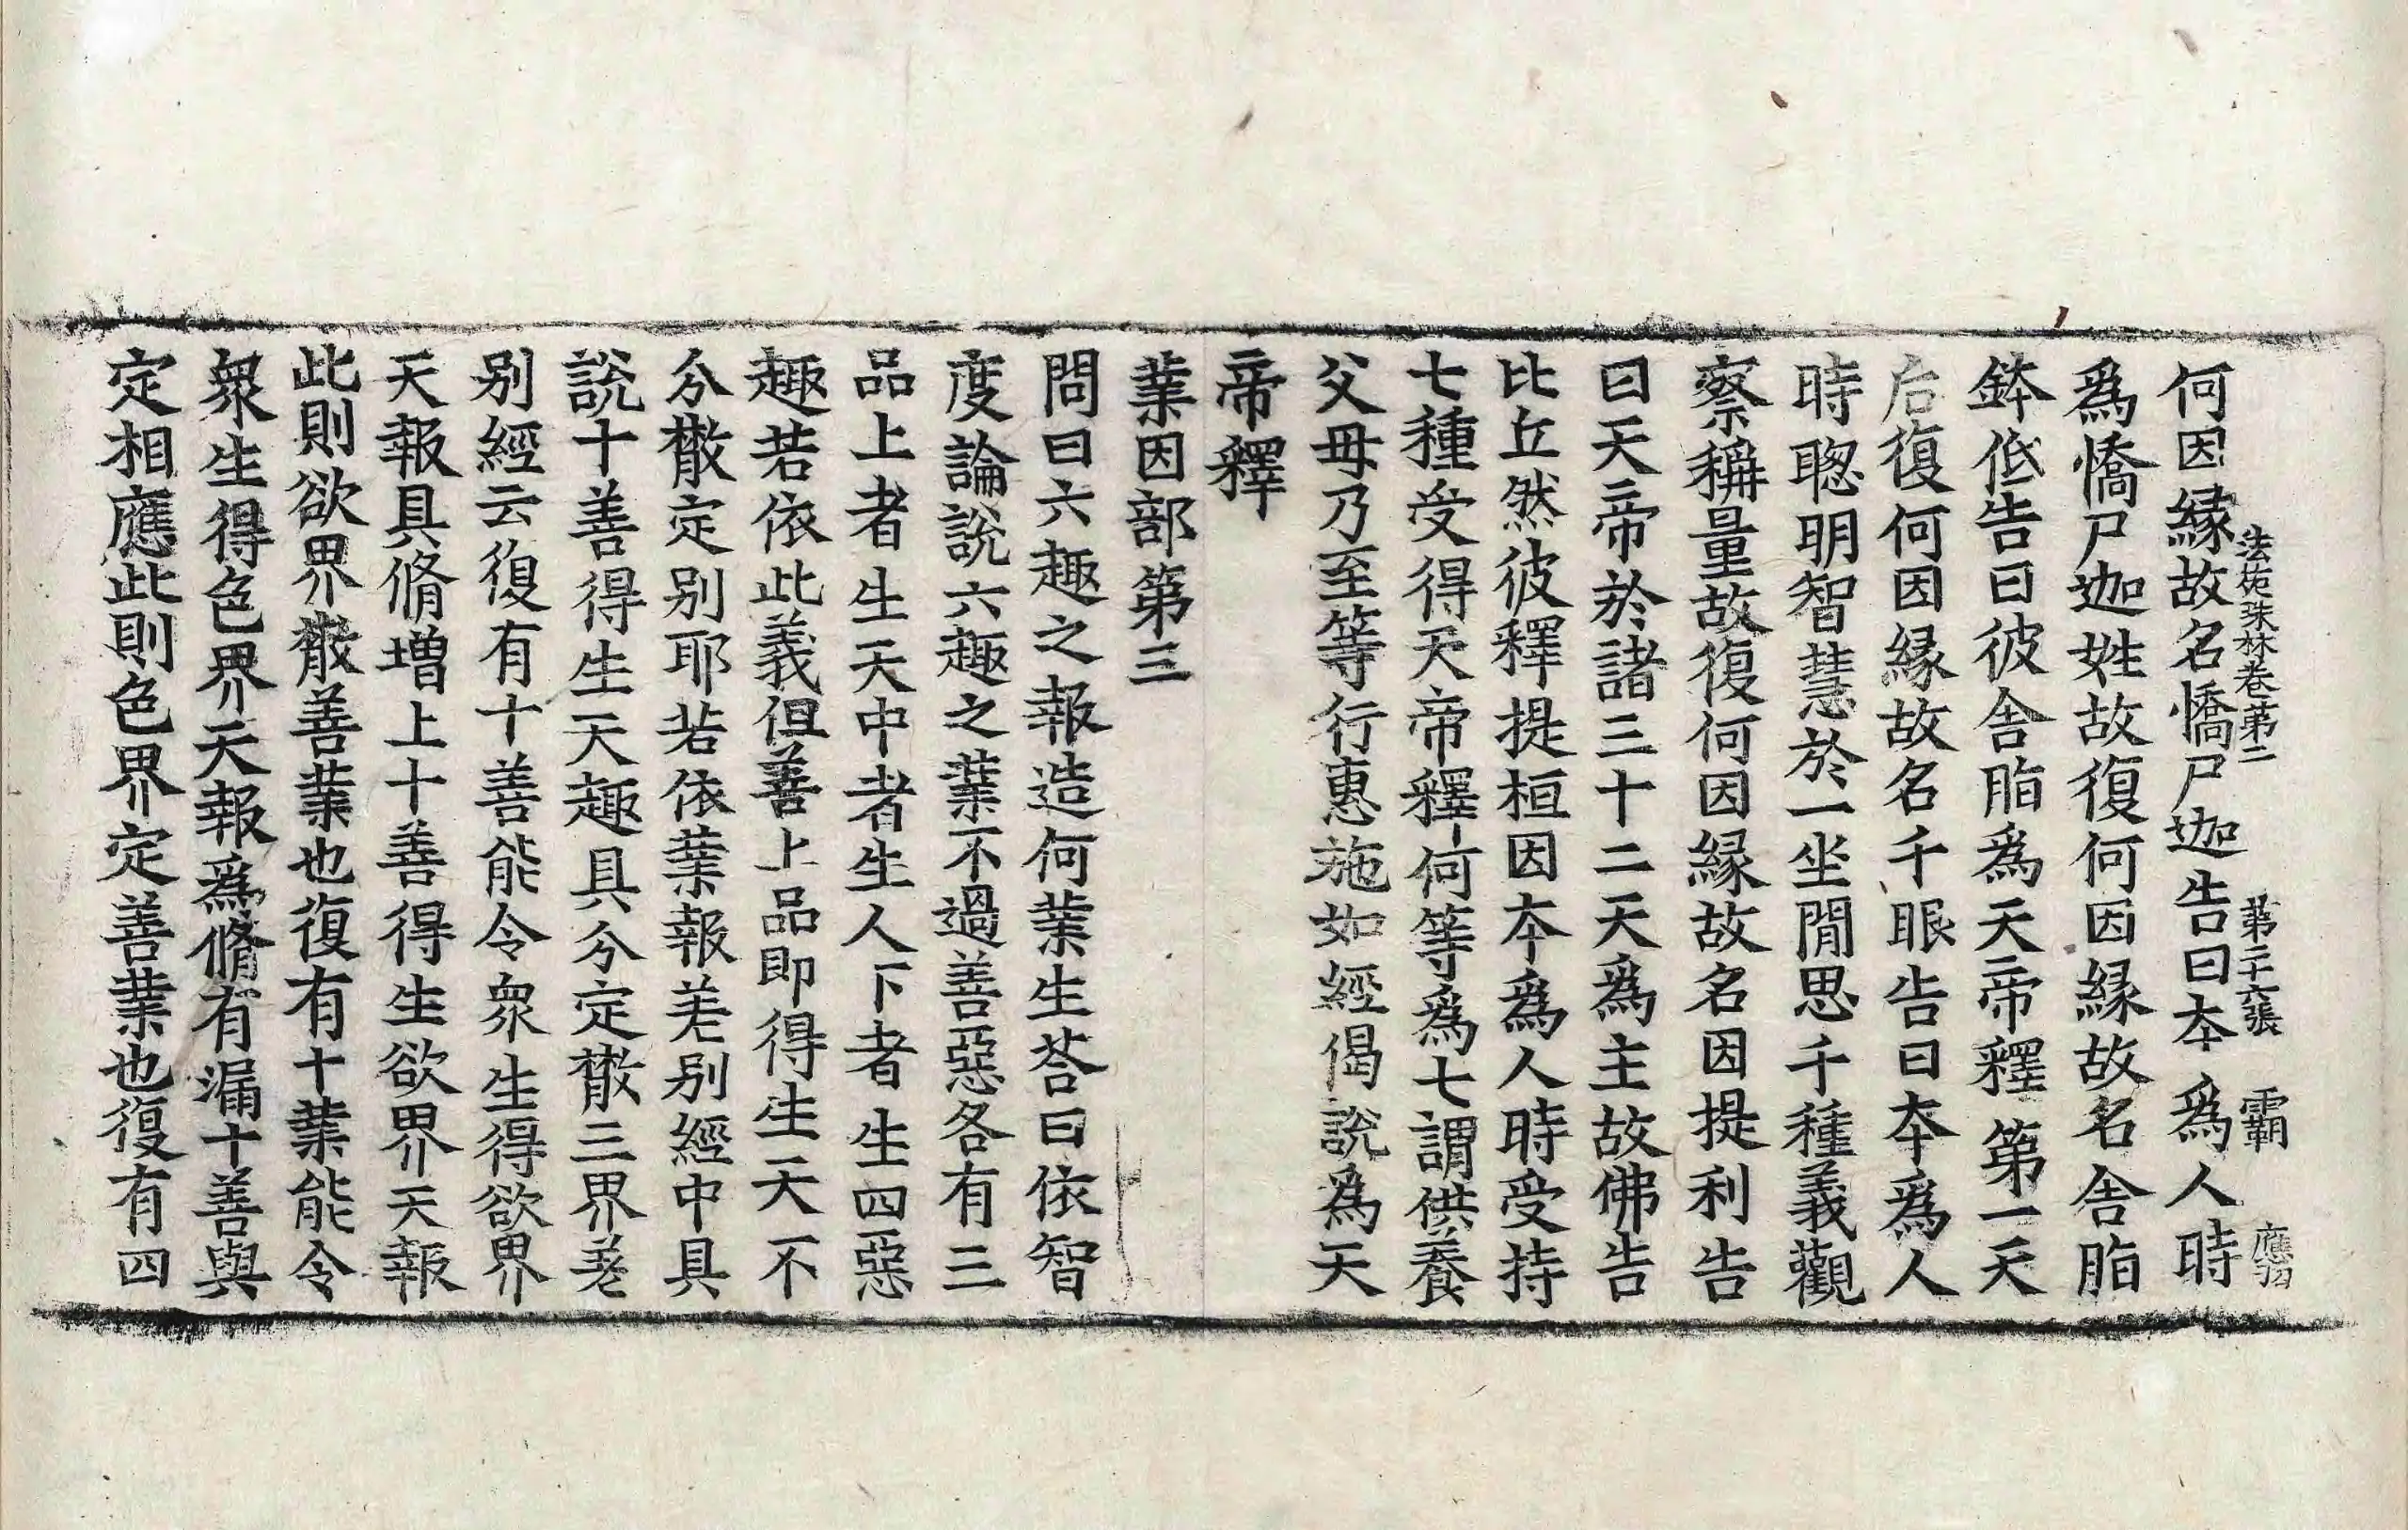 法苑珠林卷苐二 苐二十六張 霸 應㓜
何因縁故名憍尸迦告曰夲爲人時
爲憍尸迦姓故復何因縁故名舎脂
鉢低告曰彼舎脂爲天帝釋第一天
后復何因縁故名千眼告曰夲爲人
時聦明智慧於一坐閒思千種義觀
察稱量故復何因縁故名因提利告
曰天帝於諸三十二天爲主故佛告
比丘然彼釋提桓因夲爲人時受持
七種受得天帝釋何等爲七謂供養
父毋乃至等行惠施如經偈說爲天
帝釋
業因部第三
問曰六趣之報造何業生荅曰依智
度論說六趣之業不過善惡各有三
品上者生天中者生人下者生四惡
趣若依此義但善上品即得生天不
分散定别耶若依業報差别經中具
說十善得生天趣具分定散三界差
别經云復有十善能令衆生得欲界
天報具脩增上十善得生欲界天報
此則欲界散善業也復有十業能令
衆生得色界天報爲脩有漏十善與
定相應此則色界定善業也復有四